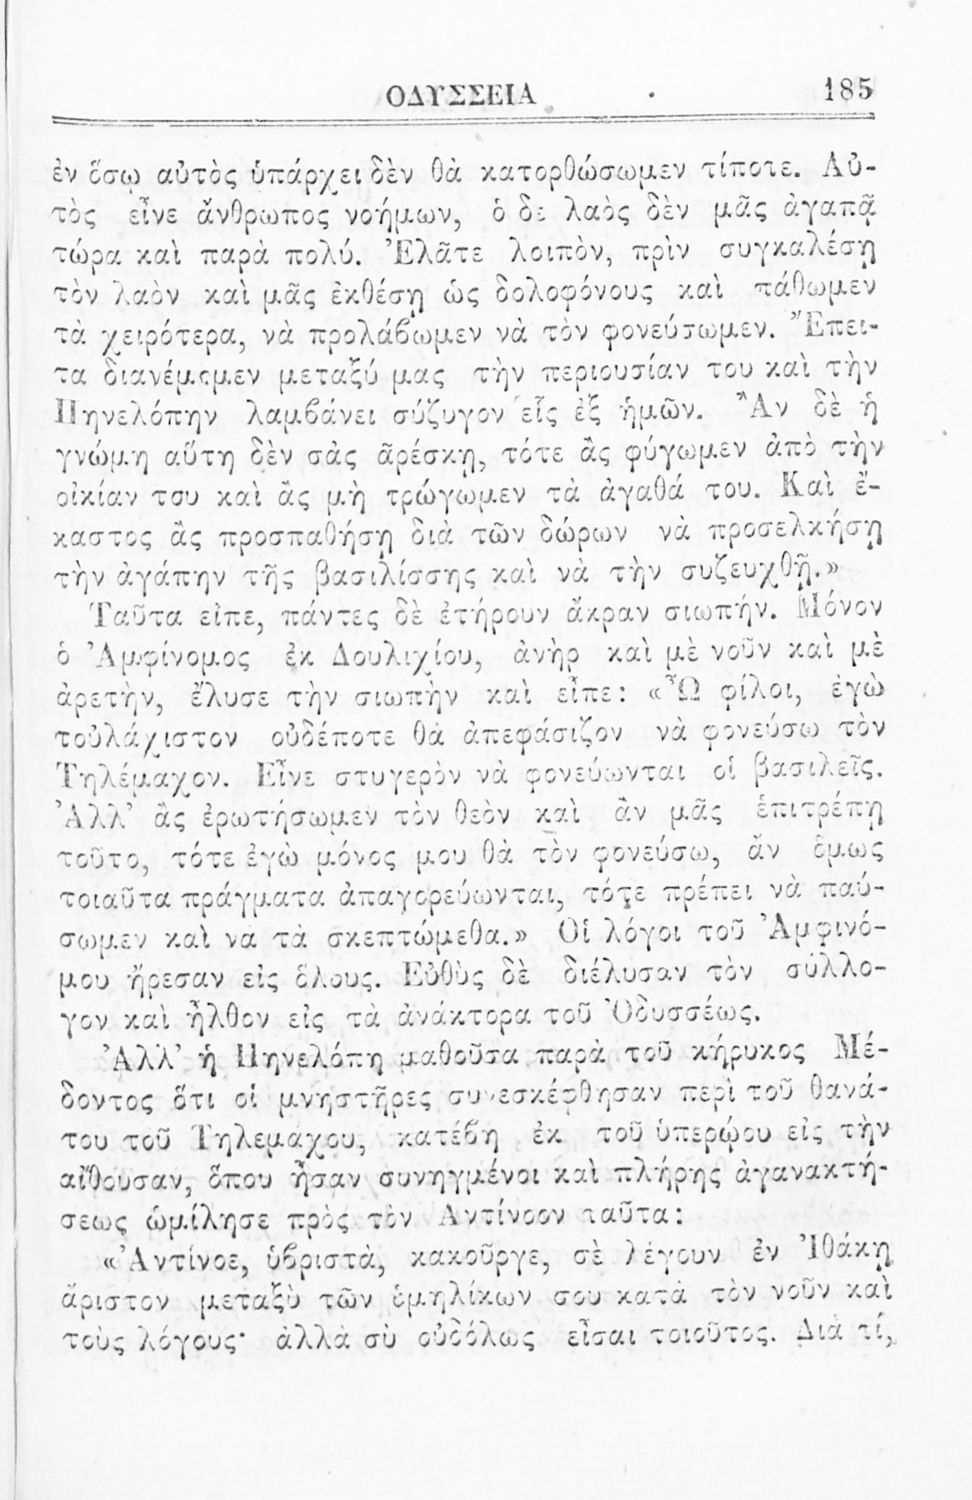 ΟΔΥΣΣΕΙΑ 185
ἐν ὅσῳ αὐτὸς ὑπάρχει δὲν θὰ κατορθώσωμεν τίποτε. Αὐ-
τὸς εἶνε ἄνθρωπος νοήμων, ὁ δὲ λαὸς δὲν μᾶς ἀγαπᾷ
τώρα καὶ παρὰ πολύ. Ἐλᾶτε λοιπὸν, πρὶν συγκαλέσῃ
τὸν λαὸν καὶ μᾶς ἐκθέσῃ ὡς δολοφόνους καὶ πάθωμεν
τὰ χειρότερα, νὰ προλάβωμεν νὰ τὸν φονεύσωμεν. Ἔπει-
τα διανέμομεν μεταξύ μας τὴν περιουσίαν του καὶ τὴν
Πηνελόπην λαμβάνει σύζυγον εἷς ἐξ ἡμῶν. Ἂν δὲ ἡ
γνώμη αὕτη δὲν σᾶς ἀρέσκῃ, τότε ἂς φύγωμεν ἀπὸ τὴν
οἰκίαν του καὶ ἂς μὴ τρώγωμεν τὰ ἀγαθά του. Καὶ ἕ-
καστος ἂς προσπαθήσῃ διὰ τῶν δώρων νὰ προσελκήσῃ
τὴν ἀγάπην τῆς βασιλίσσης καὶ νὰ τὴν συζευχθῇ.»
Ταῦτα εἶπε, πάντες δὲ ἐτήρουν ἄκραν σιωπήν. Μόνον
ὁ Ἀμφίνομος ἐκ Δουλιχίου, ἀνὴρ καὶ μὲ νοῦν καὶ μὲ
ἀρετὴν, ἔλυσε τὴν σιωπὴν καὶ εἶπε: «Ὦ φίλοι, ἐγὼ
τοὐλάχιστον οὐδέποτε θὰ ἀπεφάσιζον νὰ φονεύσω τὸν
Τηλέμαχον. Εἶνε στυγερὸν νὰ φονεύωνται οἱ βασιλεῖς.
Ἀλλ’ ἂς ἐρωτήσωμεν τὸν θεὸν καὶ ἂν μᾶς ἐπιτρέπῃ
τοῦτο, τότε ἐγὼ μόνος μου θὰ τὸν φονεύσω, ἄν ὅμως
τοιαῦτα πράγματα ἀπαγορεύωνται, τότε πρέπει νὰ παύ-
σωμεν καὶ νὰ τὰ σκεπτώμεθα.» Οἱ λόγοι τοῦ Ἀμφινό-
μου ἤρεσαν εἰς ὅλους. Εὐθὺς δὲ διέλυσαν τὸν σύλλο-
γον καὶ ἦλθον εἰς τὰ ἀνάκτορα τοῦ Ὀδυσσέως.
Ἀλλ’ ἡ Πηνελόπη μαθοῦσα παρὰ τοῦ κήρυκος Μέ-
δοντος ὅτι οἱ μνηστῆρες συνεσκέφθησαν περὶ τοῦ θανά-
του τοῦ Τηλεμάχου, κατέβη ἐκ τοῦ ὑπερῴου εἰς τὴν
αἴθουσαν, ὅπου ἦσαν συνηγμένοι καὶ πλήρης ἀγανακτή-
σεως ὡμίλησε πρὸς τὸν Ἀντίνοον ταῦτα:
«Ἀντίνοε, ὑβριστὰ, κακοῦργε, σὲ λέγουν ἐν Ἰθάκῃ
ἄριστον μεταξὺ τῶν ὁμηλίκων σου κατὰ τὸν νοῦν καὶ
τοὺς λόγους· ἀλλὰ σὺ οὐδόλως εἶσαι τοιοῦτος. Διὰ τί,